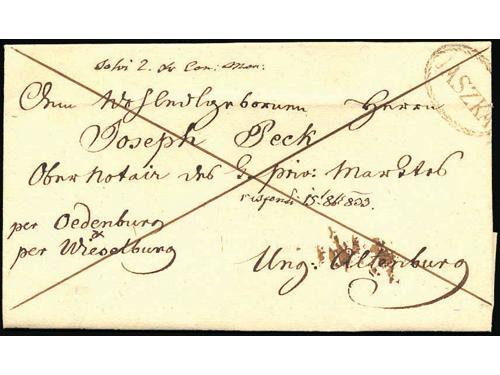 Solvi 2. xr Con: Mon:
ASZKA
Dem Wohledlgebornen Herrn
Joseph Peck
Ober Notair des priv: Marktes
15t 8b 833.
per Oedenburg
per Wieselburg
Ung: Altenburg